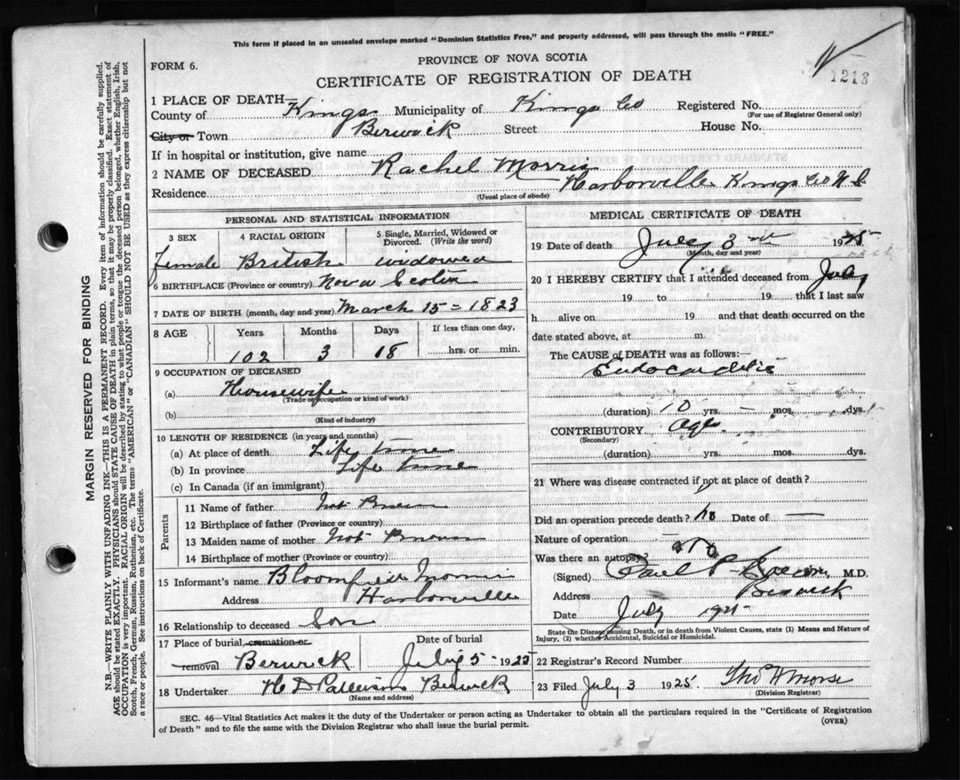 This form if placed in an unsealed envelope marked "Dominion Statistics Free," and properly addressed, will pass through the mails "FREE."
FORM 6.
PROVINCE OF NOVA SCOTIA
1213
CERTIFICATE OF REGISTRATION OF DEATH
1 PLACE OF DEATH—
County of Kings Municipality of Kings Co Registered No.
(For use of Registrar General only)
City or Town Berwick Street House No.
If in hospital or institution, give name
2 NAME OF DECEASED Rachel Morris
Residence Harborville Kings Co N S
(Usual place of abode)
PERSONAL AND STATISTICAL INFORMATION
3 SEX 4 RACIAL ORIGIN 5 Single, Married, Widowed or Divorced. (Write the word)
female British widowed
6 BIRTHPLACE (Province or country) Nova Scotia
7 DATE OF BIRTH (month, day and year) March 15 = 1823
8 AGE Years Months Days If less than one day,
102 3 18 hrs. or min.
9 OCCUPATION OF DECEASED
(a) Housewife
(Trade occupation or kind of work)
(b)
(Kind of industry)
10 LENGTH OF RESIDENCE (in years and months)
(a) At place of death Life time
(b) In province Life time
(c) In Canada (if an immigrant)
Parents
11 Name of father Not Known
12 Birthplace of father (Province or country)
13 Maiden name of mother Not Known
14 Birthplace of mother (Province or country)
15 Informant's name Morris
Address Harborville
16 Relationship to deceased Son
17 Place of burial, cremation or removal Berwick
Date of burial July 5 - 1925
18 Undertaker Berwick
(Name and address)
MEDICAL CERTIFICATE OF DEATH
19 Date of death July 3rd 1925
(Month, day and year)
20 I HEREBY CERTIFY that I attended deceased from July
19 to 19 that I last saw
h alive on 19 and that death occurred on the date
stated above, at m
The CAUSE OF DEATH was as follows:—
Endocarditis
(duration) 10 yrs. mos. dys.
CONTRIBUTORY Age
(Secondary)
(duration) yrs. mos. dys.
21 Where was disease contracted if not at place of death?
Did an operation precede death? no Date of
Nature of operation
Was there an autopsy? no
(Signed) Paul M.D.
Address Berwick
Date July 1925
State the Disease causing Death, or in death from Violent Causes, state (1) Means and Nature of Injury, (2) whether Accidental, Suicidal or Homicidal.
22 Registrar's Record Number
23 Filed July 3 1925 Morse
(Division Registrar)
SEC. 46—Vital Statistics Act makes it the duty of the Undertaker or person acting as Undertaker to obtain all the particulars required in the "Certificate of Registration
of Death" and to file the same with the Division Registrar who shall issue the burial permit. (OVER)
MARGIN RESERVED FOR BINDING
N.B.—WRITE PLAINLY WITH UNFADING INK—THIS IS A PERMANENT RECORD. Every item of information should be carefully supplied.
AGE should be stated EXACTLY. PHYSICIANS should STATE CAUSE OF DEATH in plain terms, so that it may be properly classified. Exact statement of
OCCUPATION is very important. RACIAL ORIGIN will be described by stating to what people or tongue the deceased person belonged, whether English, Irish,
Scotch, French, German, Russian, Ruthenian, etc. The terms "AMERICAN" or "CANADIAN" SHOULD NOT BE USED as they express citizenship but not
a race or people. See instructions on back of Certificate.